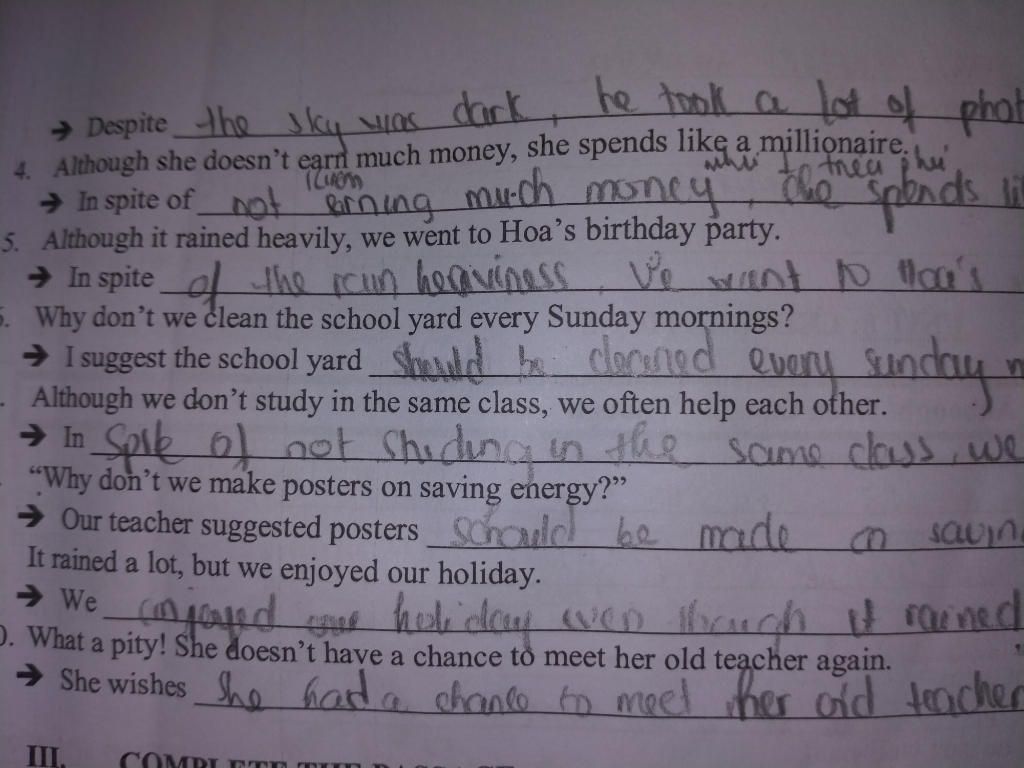 → Despite the sky was dark, he took a lot of phot
4. Although she doesn't earn much money, she spends like a millionaire.
→ In spite of not erning much money, she spends li
5. Although it rained heavily, we went to Hoa's birthday party.
→ In spite of the rain heaviness, We want to Hoa's
Why don't we clean the school yard every Sunday mornings?
→ I suggest the school yard should be cleaned every sunday m
Although we don't study in the same class, we often help each other.
→ In Spite of not studing in the same class, we
"Why don't we make posters on saving energy?"
→ Our teacher suggested posters should be made on savin
It rained a lot, but we enjoyed our holiday.
→ We enjoyed our holiday even though it rained
0. What a pity! She doesn't have a chance to meet her old teacher again.
→ She wishes she had a chance to meet her old teacher
III. COMPLETE THE PASSAGE